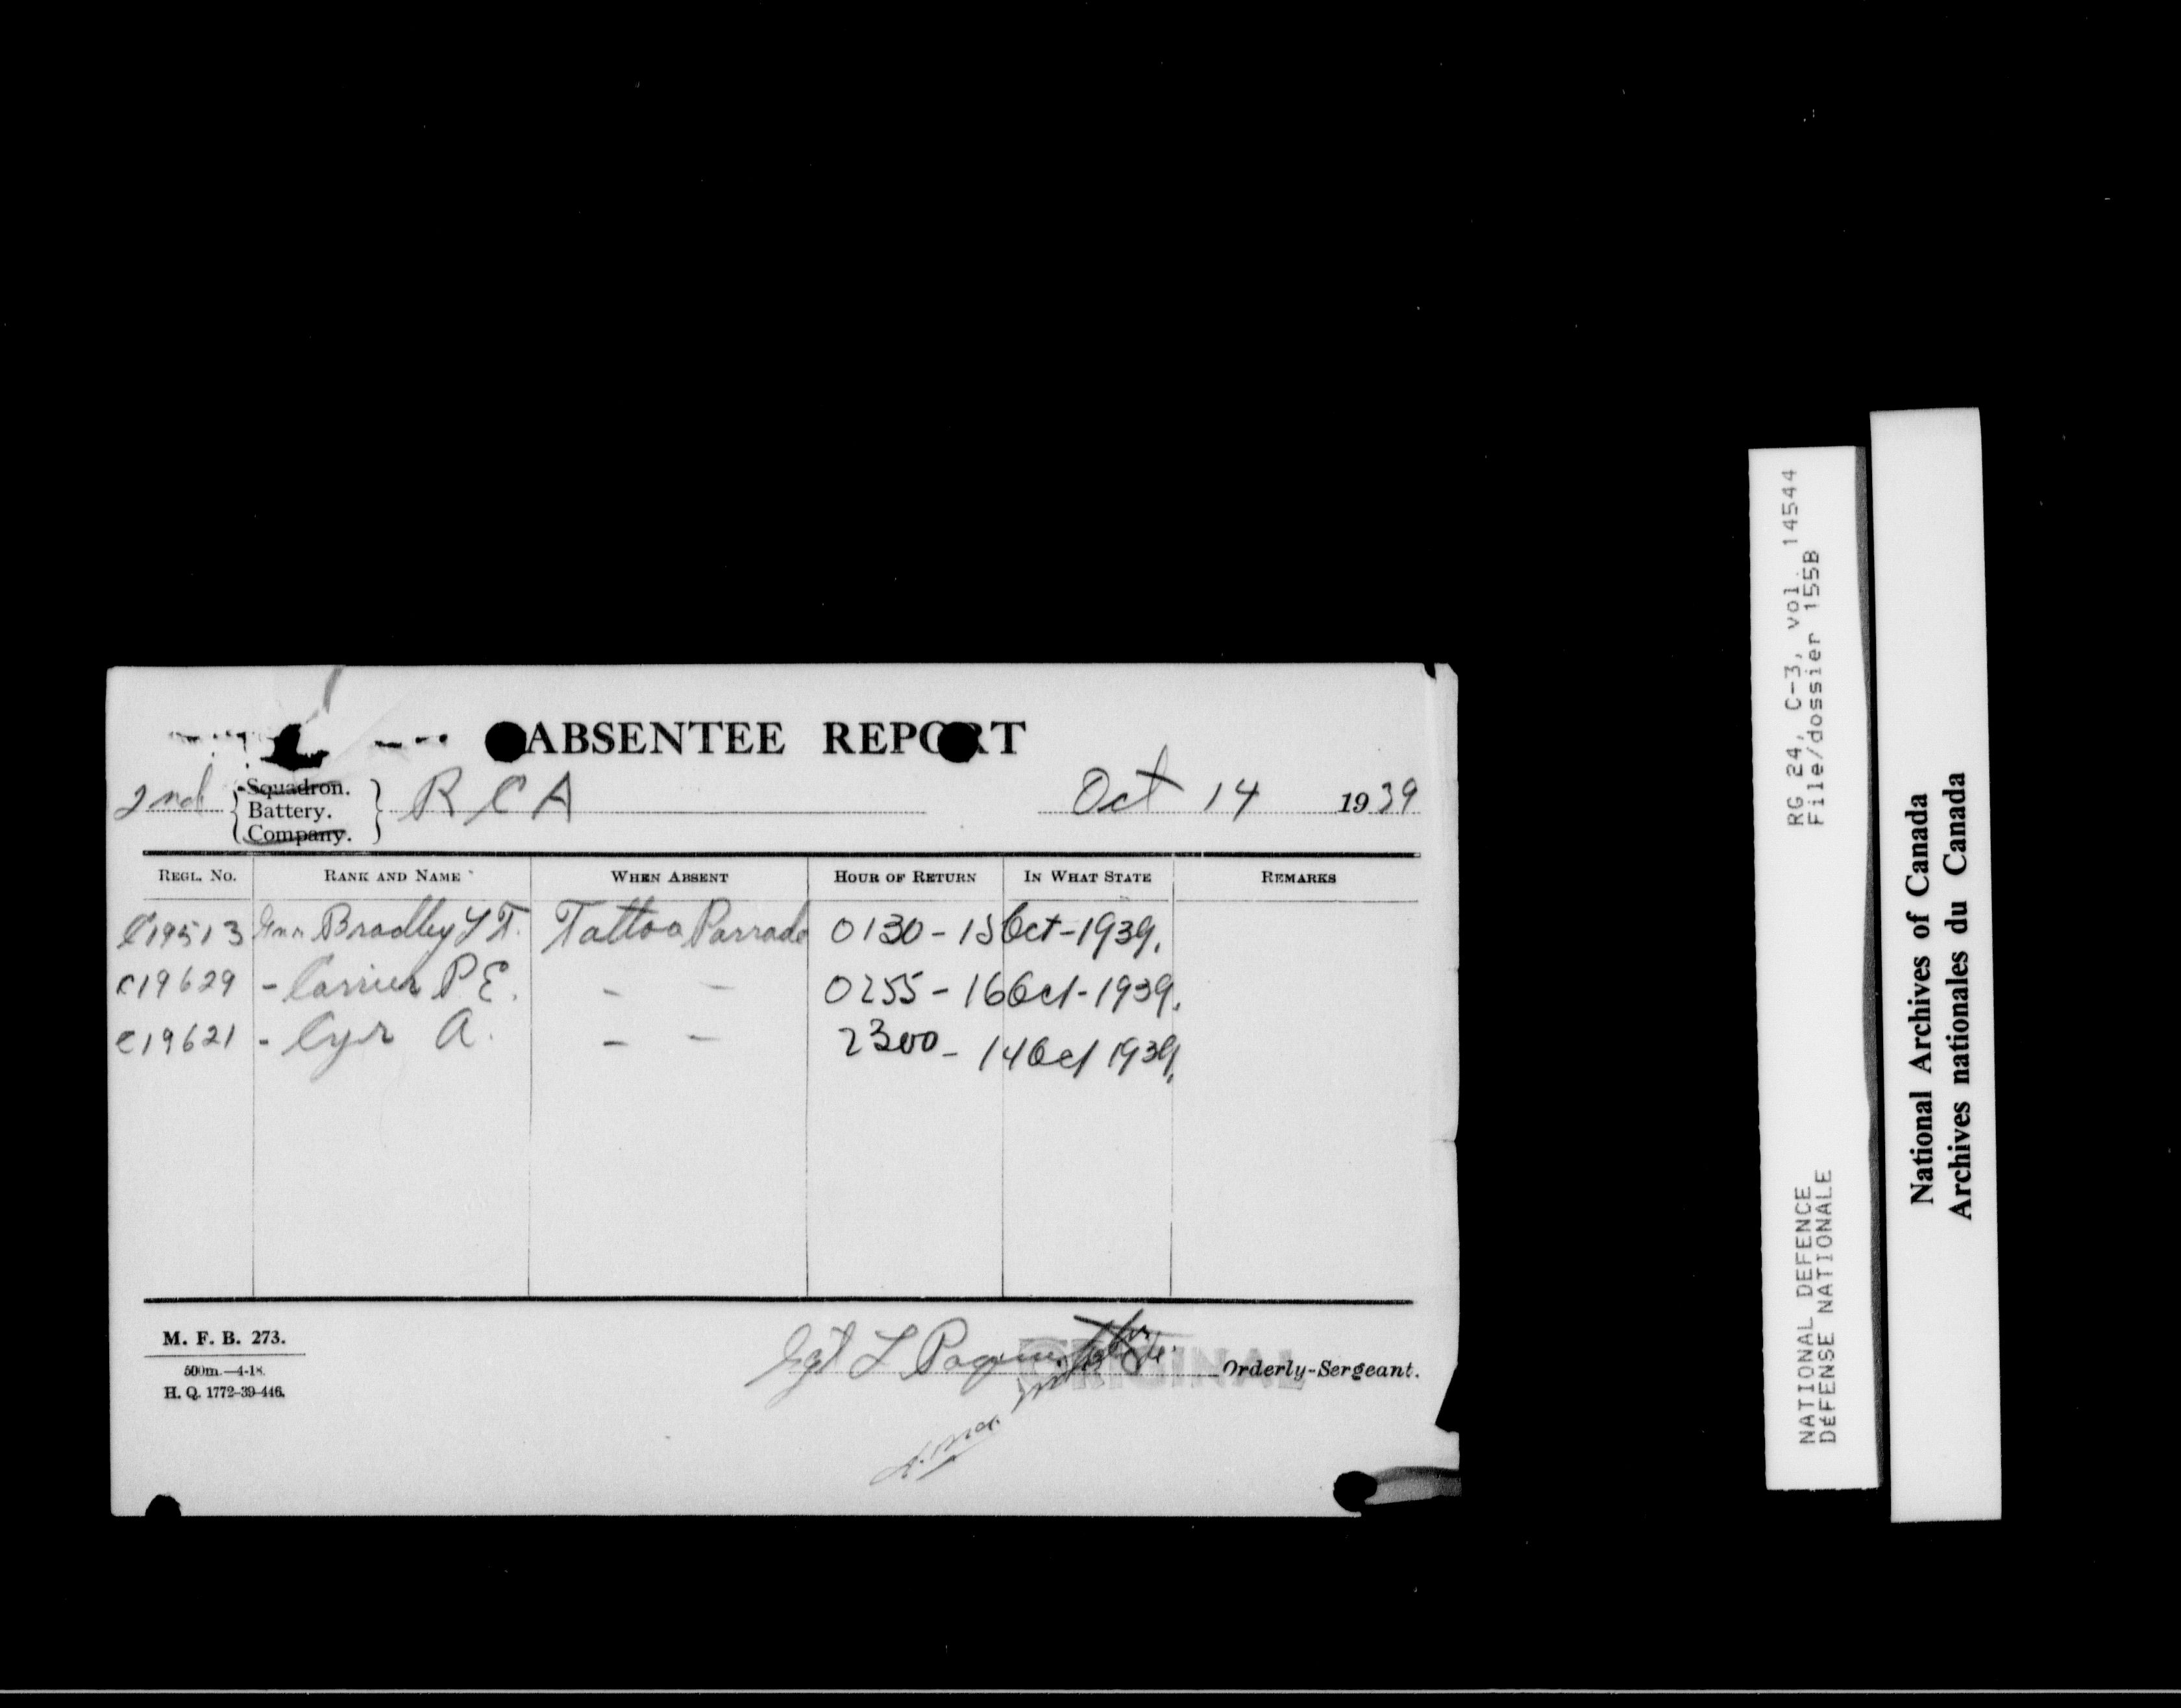 ABSENTEE REPORT
2nd Squadron. Battery. Company. R C A Oct 14 1939
REGL. NO. RANK AND NAME WHEN ABSENT HOUR OF RETURN IN WHAT STATE REMARKS
C19513 Gnr Bradley Y T. Tattoo Parrade 0130 - 15 Oct - 1939.
C19629 - Carrier P E. - - 0255 - 16 Oct - 1939.
C19621 - Cyr A. - - 2300 - 14 Oct 1939.
M. F. B. 273.
500m.—4-18.
H. Q. 1772-39-446.
Sgt L Orderly-Sergeant.
ORIGINAL
RG 24, C-3, vol. 14544
File/dossier 155B
NATIONAL DEFENCE
DÉFENSE NATIONALE
National Archives of Canada
Archives nationales du Canada